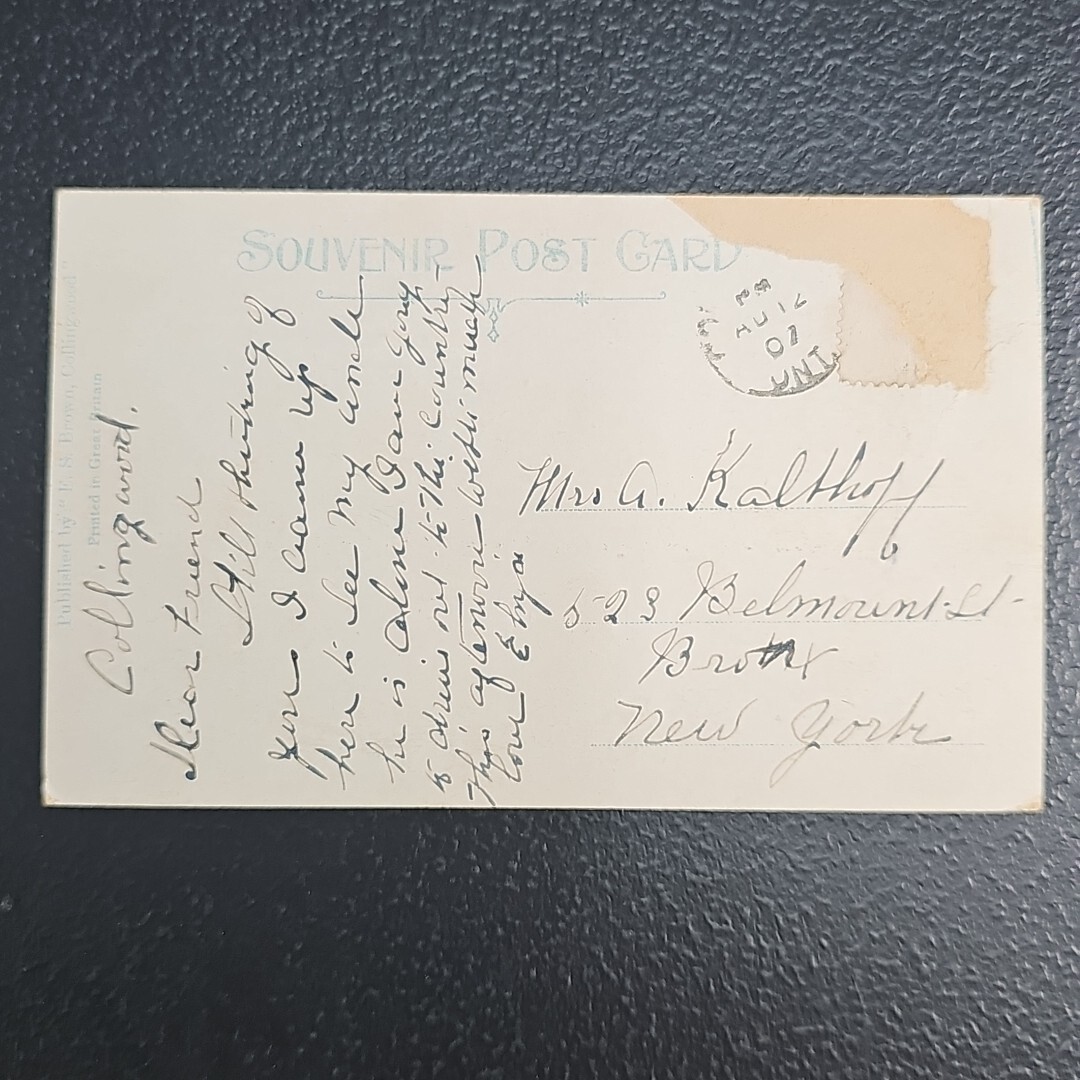 SOUVENIR POST CARD
Published by F. S. Brown, Collingwood
Printed in Great Britain
PM
AU 17
07
ONT
Collingwood.
Dear Friend
Still thinking of
you I came up
here to see my uncle
he is alone I am going
to drive out to the country
this afternoon with much
love
Mrs A. Kalthoff
523 Belmount St-
Bronx
New York